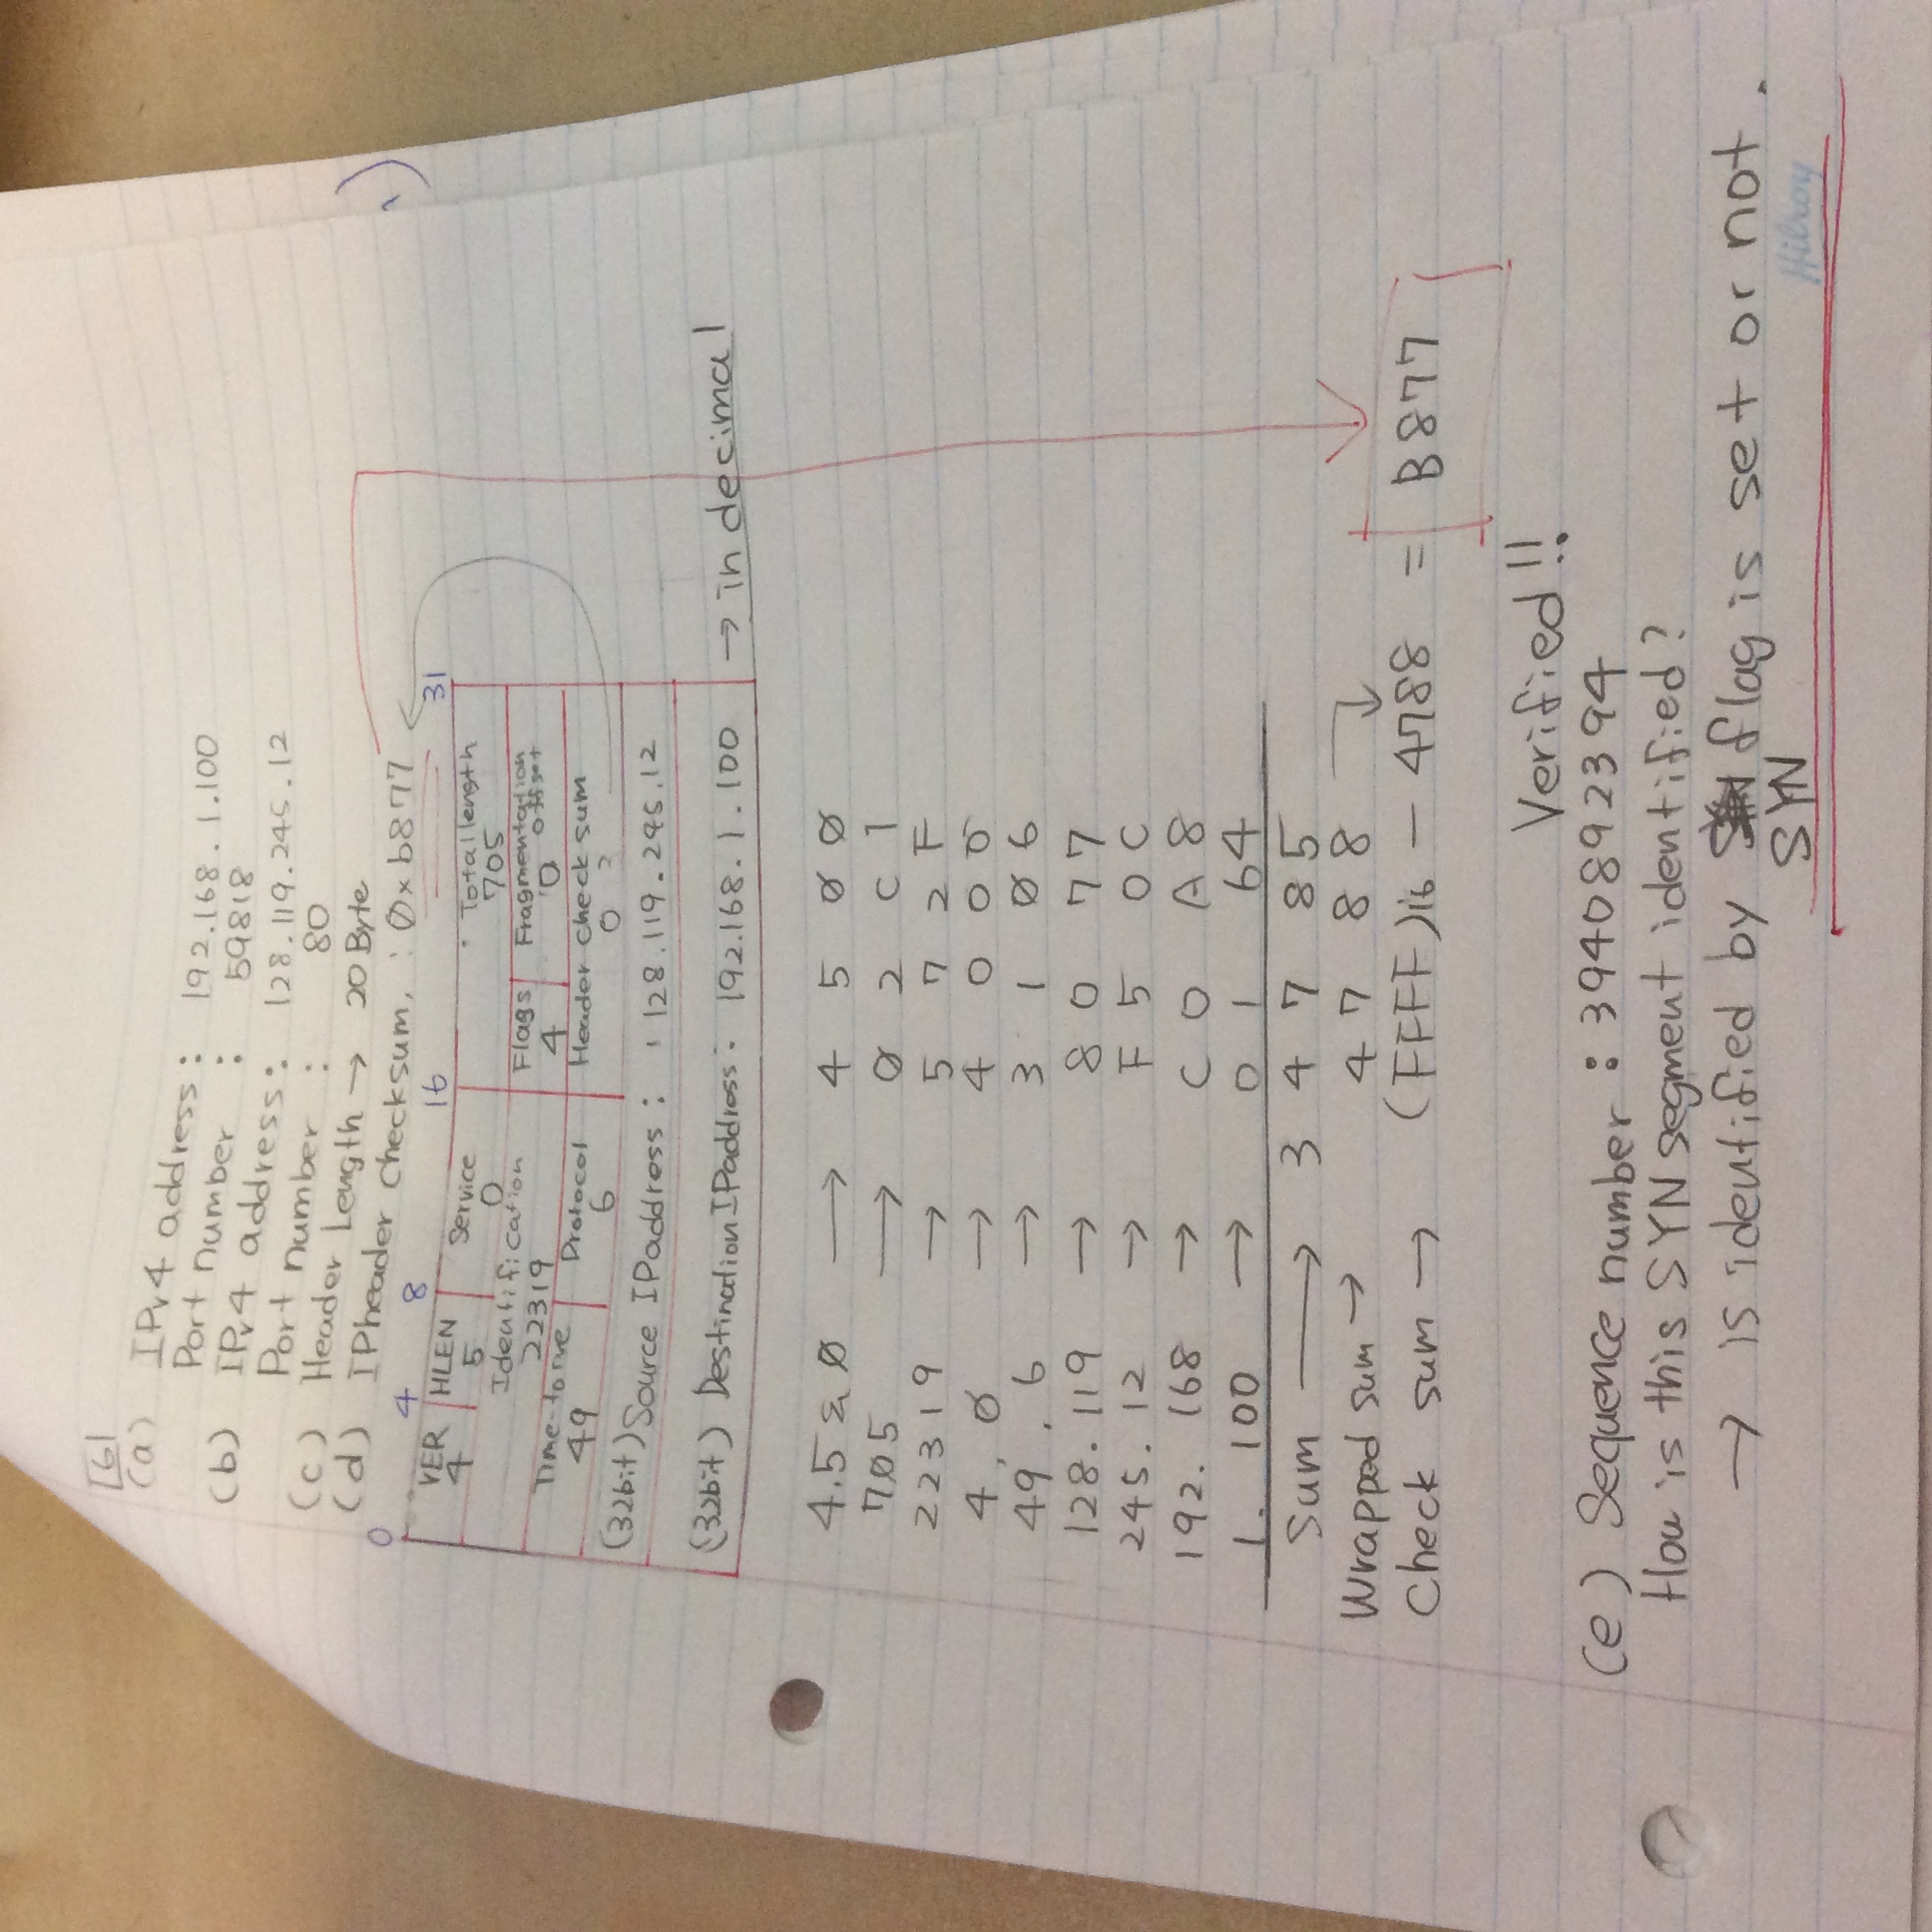 [6]
(a) IPv4 address : 192.168.1.100
Port number : 59818
(b) IPv4 address : 128.119.245.12
Port number : 80
(c) Header Length → 20 Byte
(d) IPheader checksum, : 0xb877
0 4 8 16 31
VER HLEN Service Total length
4 5 0 705
Identification Flags Fragmentation offset
22319 4 0
Time-to-live Protocol Header check sum
49 6 0 ?
(32bit) Source IPaddress : 128.119.245.12
(32bit) Destination IPaddress : 192.168.1.100 → in decimal
4.5 & 0 → 4 5 0 0
705 → 0 2 C 1
22319 → 5 7 2 F
4, 0 → 4 0 0 0
49 . 6 → 3 1 0 6
128. 119 → 8 0 7 7
245. 12 → F 5 0 C
192. 168 → C 0 A 8
1. 100 → 0 1 6 4
Sum → 3 4 7 8 5
Wrapped sum → 4 7 8 8
Check sum → (FFFF)16 - 4788 = B877
Verified!!
(e) Sequence number : 3940892394
How is this SYN segment identified?
→ is identified by flag is set or not.
SYN
Hilroy